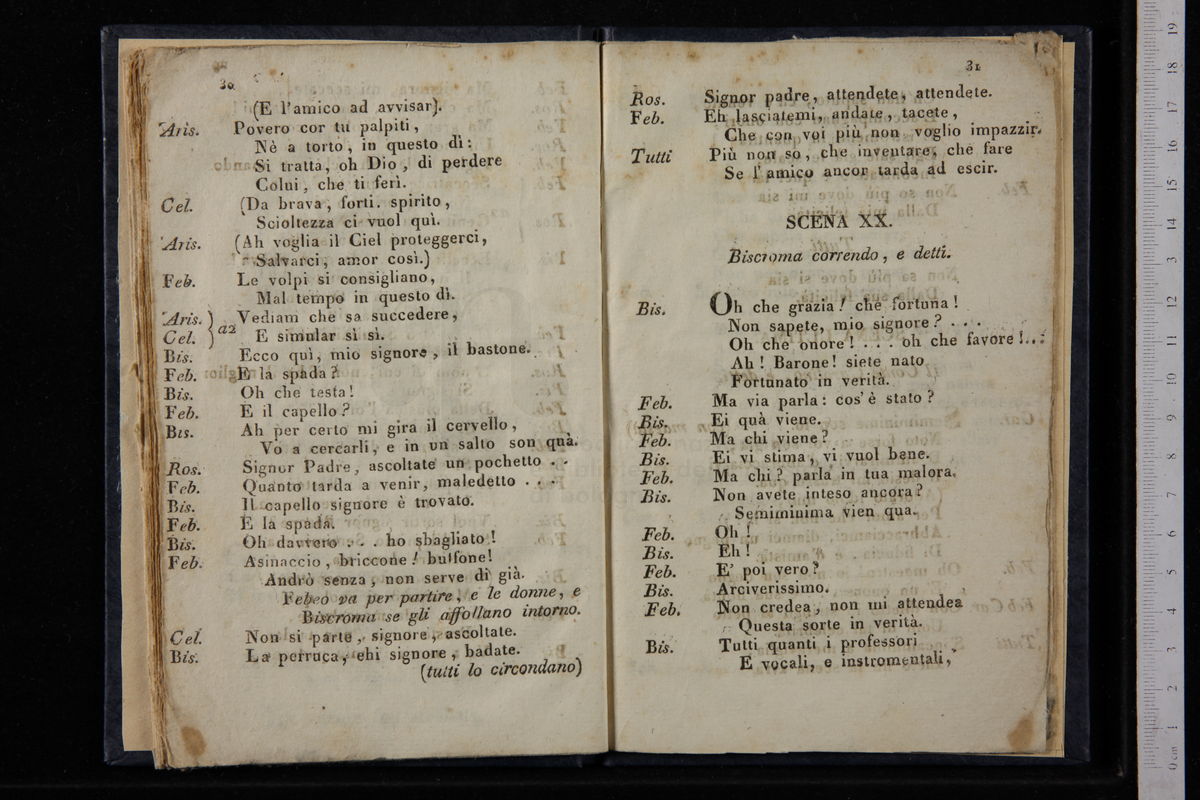 30
(E l'amico ad avvisar).
Aris. Povero cor tu palpiti,
Nè a torto, in questo dì:
Si tratta, oh Dio, di perdere
Colui, che ti ferì.
Cel. (Da brava, forti. spirito,
Scioltezza ci vuol quì.
Aris. (Ah voglia il Ciel proteggerci,
Salvarci, amor così.)
Feb. Le volpi si consigliano,
Mal tempo in questo dì.
Aris. ) a2 Vediam che sa succedere,
Cel. ) E simular sì sì.
Bis. Ecco quì, mio signore, il bastone.
Feb. E la spada?
Bis. Oh che testa!
Feb. E il capello?
Bis. Ah per certo mi gira il cervello,
Vo a cercarli, e in un salto son quà.
Ros. Signor Padre, ascoltate un pochetto . .
Feb. Quanto tarda a venir, maledetto . . .
Bis. Il capello signore è trovato.
Feb. E la spada.
Bis. Oh davvero . . . ho sbagliato!
Feb. Asinaccio, briccone! buffone!
Andrò senza, non serve di già.
Febeo va per partire, e le donne, e
Biscroma se gli affollano intorno.
Cel. Non si parte, signore, ascoltate.
Bis. La perruca, ehi signore, badate.
(tutti lo circondano)
31
Ros. Signor padre, attendete, attendete.
Feb. Eh lasciatemi, andate, tacete,
Che con voi più non voglio impazzir.
Tutti Più non so, che inventare, che fare
Se l'amico ancor tarda ad escir.
SCENA XX.
Biscroma correndo, e detti.
Bis. Oh che grazia! che fortuna!
Non sapete, mio signore? . . .
Oh che onore! . . . oh che favore!..:
Ah! Barone! siete nato
Fortunato in verità.
Feb. Ma via parla: cos'è stato?
Bis. Ei quà viene.
Feb. Ma chi viene?
Bis. Ei vi stima, vi vuol bene.
Feb. Ma chi? parla in tua malora.
Bis. Non avete inteso ancora?
Semiminima vien qua.
Feb. Oh!
Bis. Eh!
Feb. E' poi vero?
Bis. Arciverissimo.
Feb. Non credea, non mi attendea
Questa sorte in verità.
Bis. Tutti quanti i professori
E vocali, e instromentali,